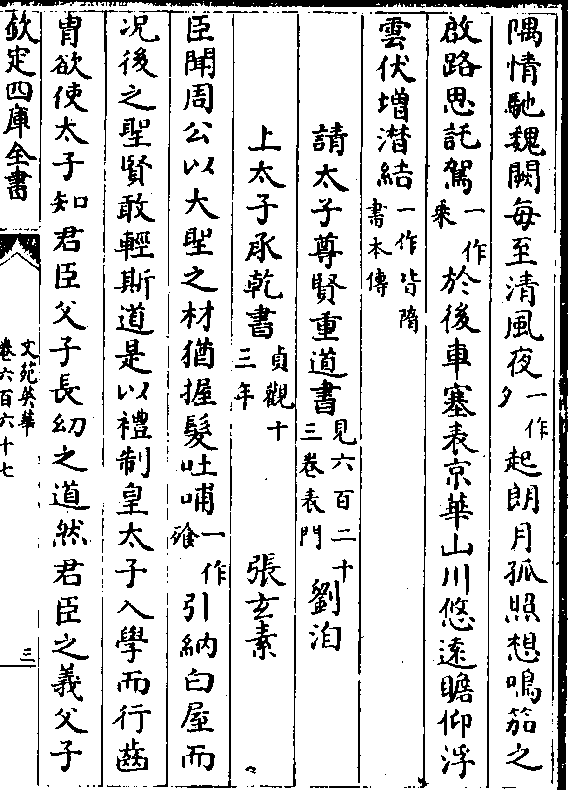 隅情馳魏闕每至清風夜一作夕起朗月孤照想鳴笳之
啟路思託駕一作乘於後車塞表京華山川悠遠瞻仰浮
雲伏增潜結一作皆隋書本傳
請太子尊賢重道書見六百二十三卷表門 劉洎
上太子承乾書貞觀十三年 張玄素
臣聞周公以大聖之材猶握髮吐哺一作飱引納白屋而
况後之聖賢敢輕斯道是以禮制皇太子入學而行齒
胄欲使太子知君臣父子長幼之道然君臣之義父子
欽定四庫全書
文苑英華
卷六百六十七
三